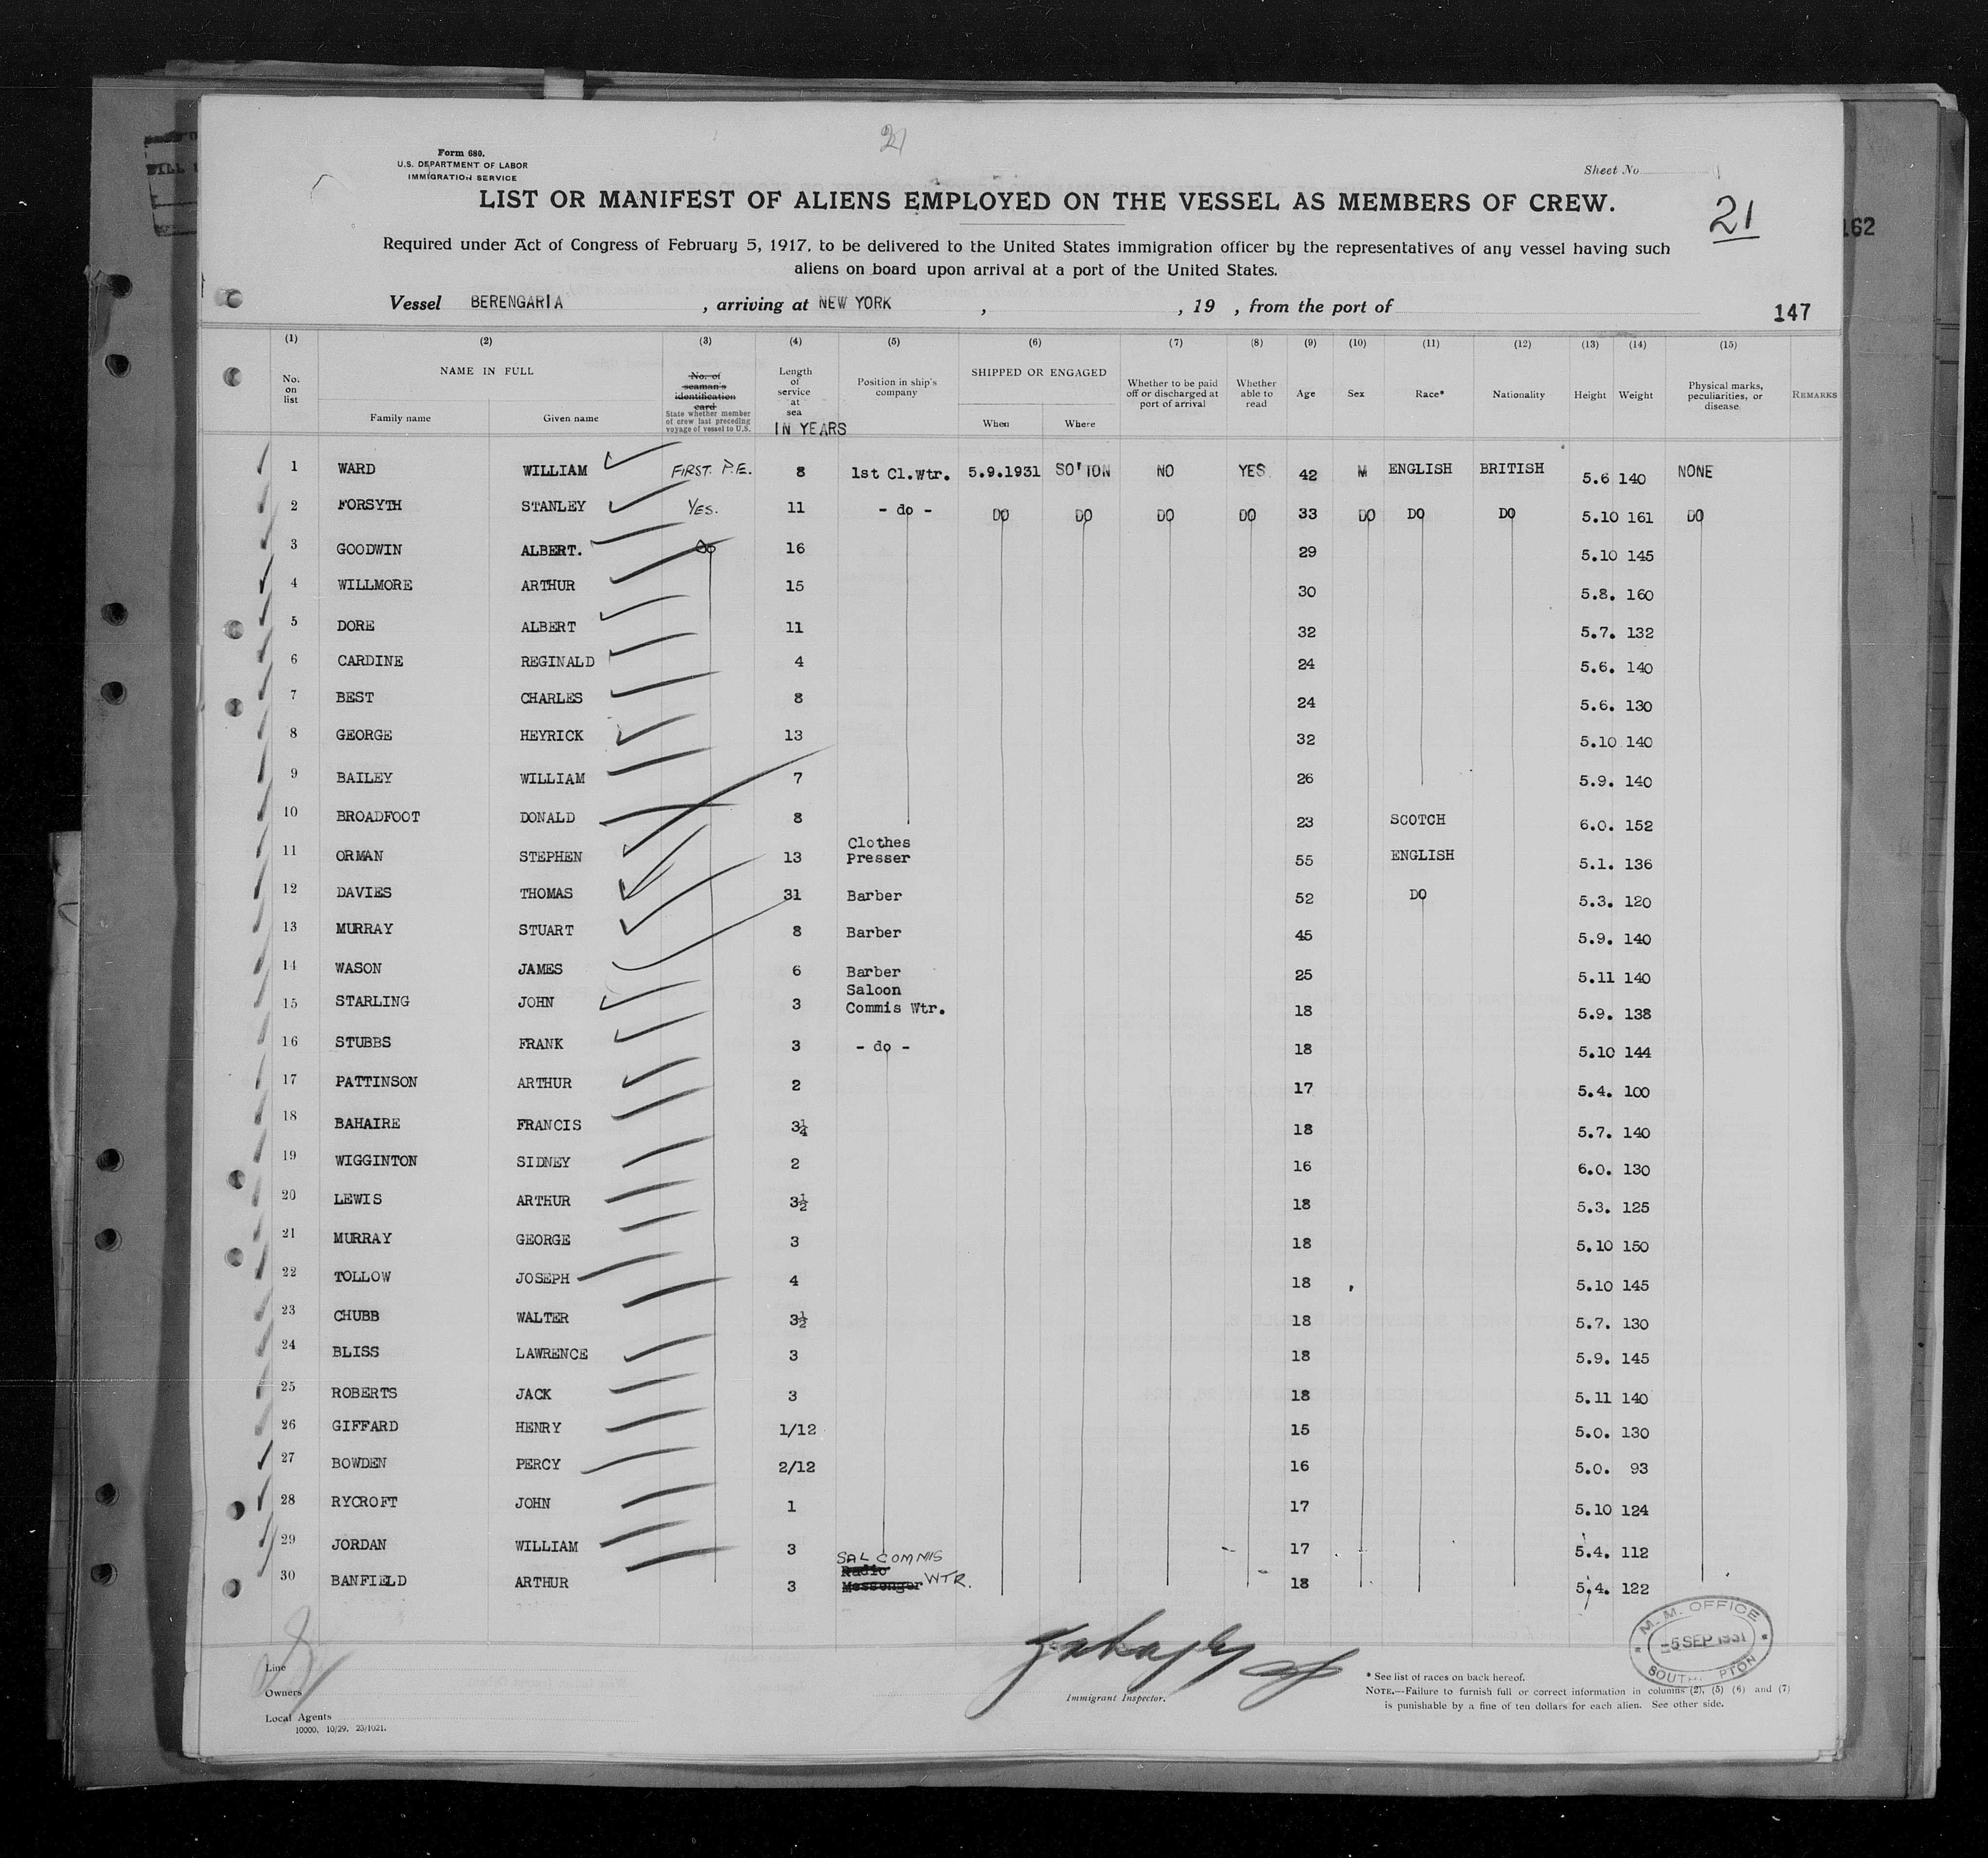 21
Form 680.
U.S. DEPARTMENT OF LABOR
IMMIGRATION SERVICE
Sheet No.
LIST OR MANIFEST OF ALIENS EMPLOYED ON THE VESSEL AS MEMBERS OF CREW.
21
162
Required under Act of Congress of February 5, 1917, to be delivered to the United States immigration officer by the representatives of any vessel having such
aliens on board upon arrival at a port of the United States.
Vessel BERENGARIA , arriving at NEW YORK , , 19 , from the port of
147
(1) (2) (3) (4) (5) (6) (7) (8) (9) (10) (11) (12) (13) (14) (15)
No. on list NAME IN FULL Family name Given name No. of seaman's identification card State whether member of crew last preceding voyage of vessel to U.S. Length of service at sea IN YEARS Position in ship's company SHIPPED OR ENGAGED When Where Whether to be paid off or discharged at port of arrival Whether able to read Age Sex Race* Nationality Height Weight Physical marks, peculiarities, or disease REMARKS
1 WARD WILLIAM FIRST. P.E. 8 1st Cl.Wtr. 5.9.1931 SO'TON NO YES 42 M ENGLISH BRITISH 5.6 140 NONE
2 FORSYTH STANLEY YES. 11 - do - DO DO DO DO 33 DO DO DO 5.10 161 DO
3 GOODWIN ALBERT. Do 16 29 5.10 145
4 WILLMORE ARTHUR 15 30 5.8. 160
5 DORE ALBERT 11 32 5.7. 132
6 CARDINE REGINALD 4 24 5.6. 140
7 BEST CHARLES 8 24 5.6. 130
8 GEORGE HEYRICK 13 32 5.10 140
9 BAILEY WILLIAM 7 26 5.9. 140
10 BROADFOOT DONALD 8 23 SCOTCH 6.0. 152
11 ORMAN STEPHEN 13 Clothes Presser 55 ENGLISH 5.1. 136
12 DAVIES THOMAS 31 Barber 52 DO 5.3. 120
13 MURRAY STUART 8 Barber 45 5.9. 140
14 WASON JAMES 6 Barber 25 5.11 140
15 STARLING JOHN 3 Saloon Commis Wtr. 18 5.9. 138
16 STUBBS FRANK 3 - do - 18 5.10 144
17 PATTINSON ARTHUR 2 17 5.4. 100
18 BAHAIRE FRANCIS 3¼ 18 5.7. 140
19 WIGGINTON SIDNEY 2 16 6.0. 130
20 LEWIS ARTHUR 3½ 18 5.3. 125
21 MURRAY GEORGE 3 18 5.10 150
22 TOLLOW JOSEPH 4 18 5.10 145
23 CHUBB WALTER 3½ 18 5.7. 130
24 BLISS LAWRENCE 3 18 5.9. 145
25 ROBERTS JACK 3 18 5.11 140
26 GIFFARD HENRY 1/12 15 5.0. 130
27 BOWDEN PERCY 2/12 16 5.0. 93
28 RYCROFT JOHN 1 17 5.10 124
29 JORDAN WILLIAM 3 17 5.4. 112
30 BANFIELD ARTHUR 3 SAL COMMIS Radio Messenger WTR. 18 5.4. 122
M. M. OFFICE
5 SEP 1931
Line
Owners
Local Agents
10000, 10/29, 23/1021.
Immigrant Inspector.
* See list of races on back hereof.
NOTE.—Failure to furnish full or correct information in columns (2), (5) (6) and (7)
is punishable by a fine of ten dollars for each alien. See other side.